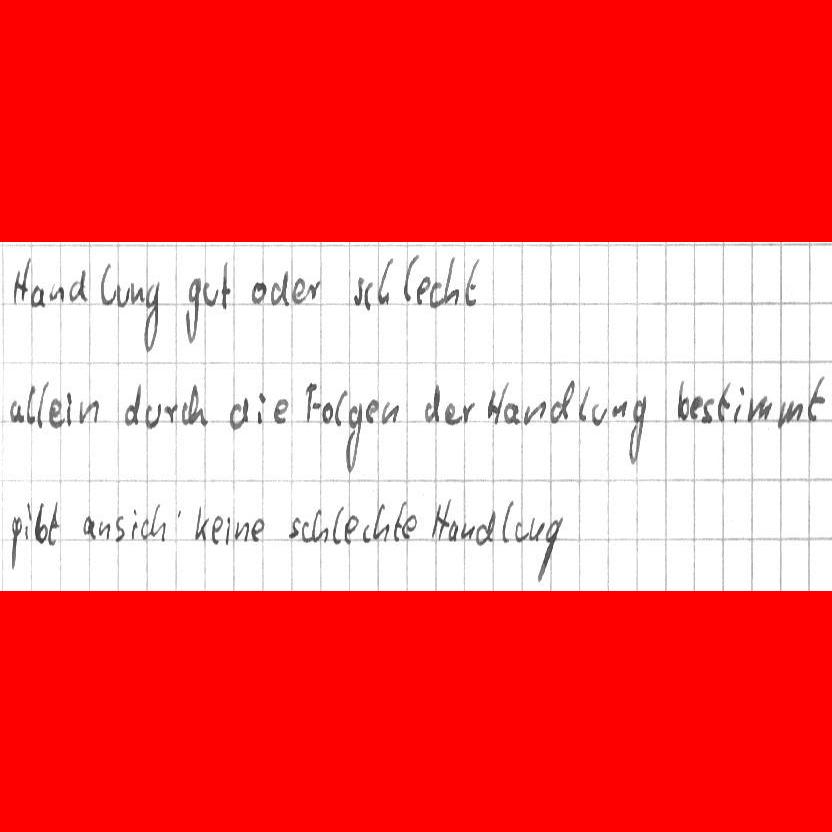 Handlung gut oder schlecht
allein durch die Folgen der Handlung bestimmt
gibt ansich keine schlechte Handlung